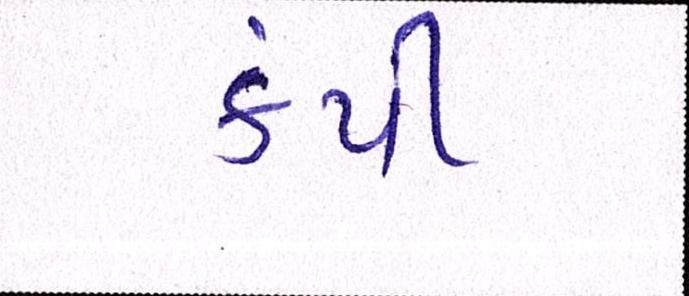 કંપી